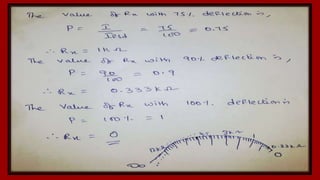 The value of Rx with 75% deflection is,
P = I / Ifsd = 75 / 100 = 0.75
∴ Rx = 1KΩ
The value of Rx with 90% deflection is,
P = 90 / 100 = 0.9
∴ Rx = 0.333KΩ
The value of Rx with 100% deflection is
P = 100% = 1
∴ Rx = 0
3KΩ
0.33KΩ
∞
0